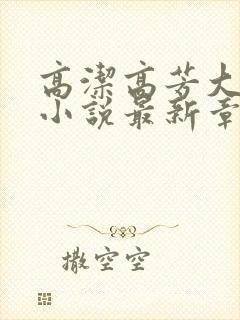 高潔高芳大
小說最新章
撒空空